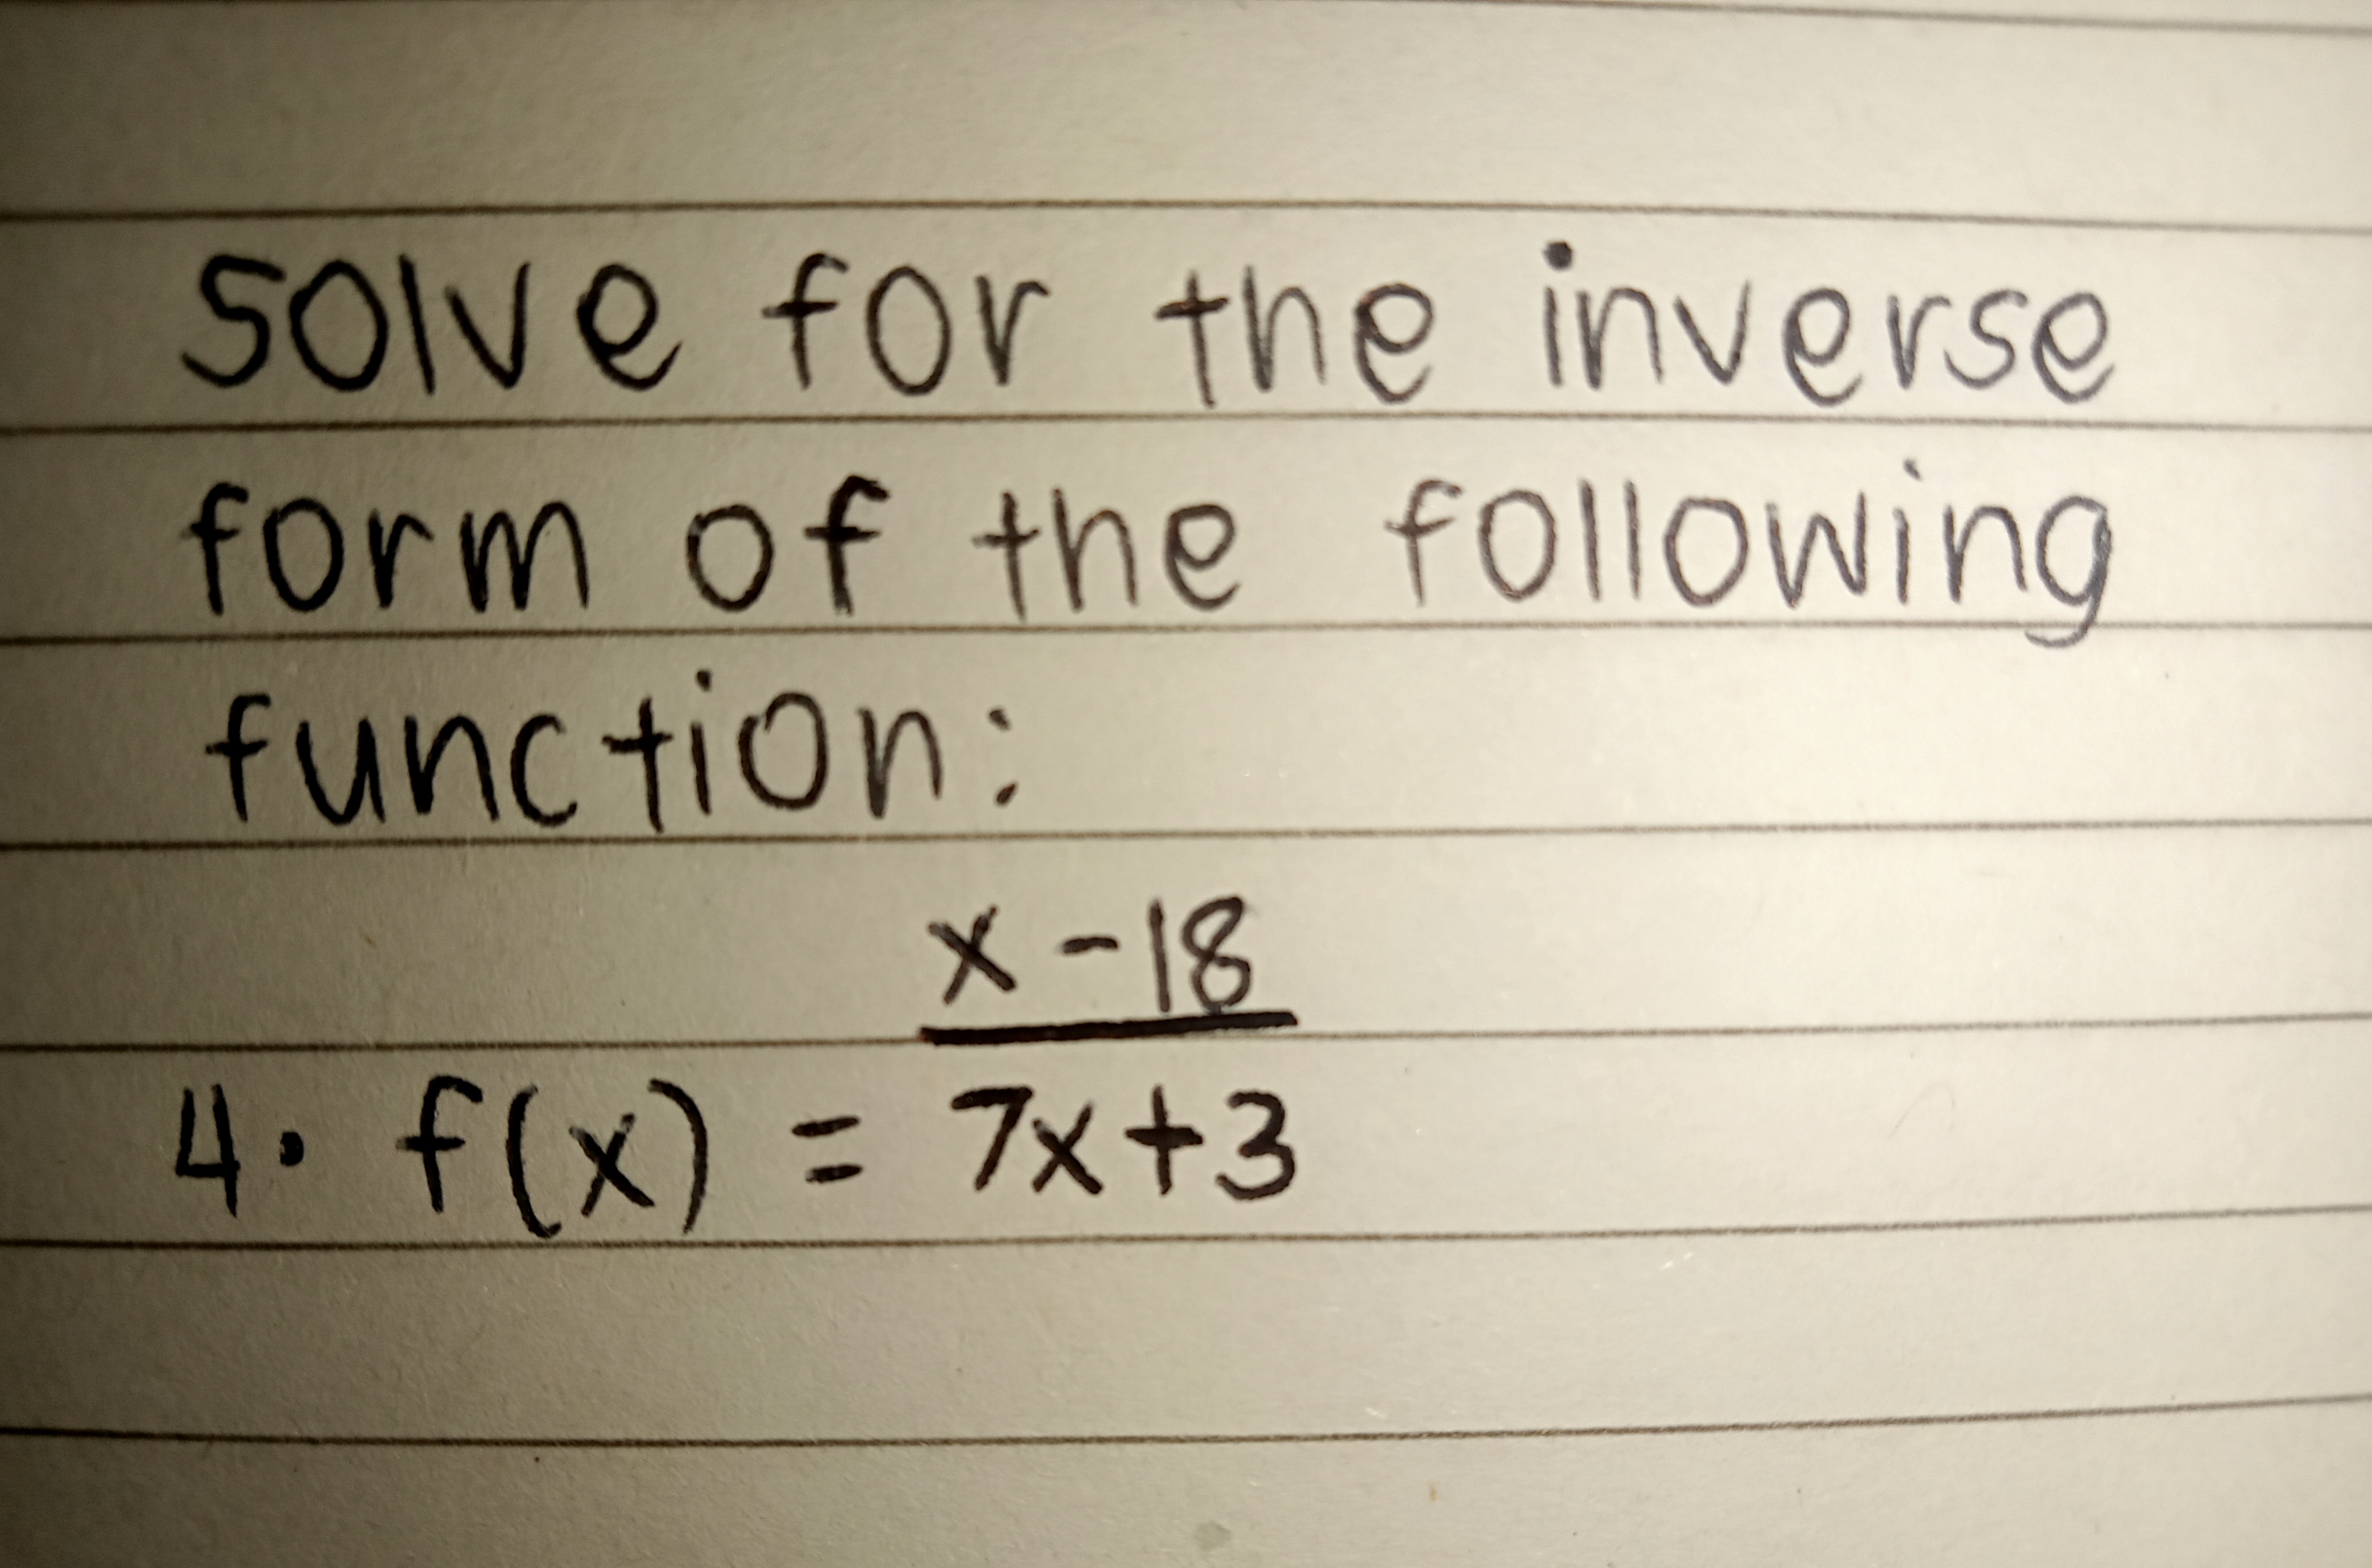 solve for the inverse
form of the following
function:
x - 18
4. f(x) = 7x+3